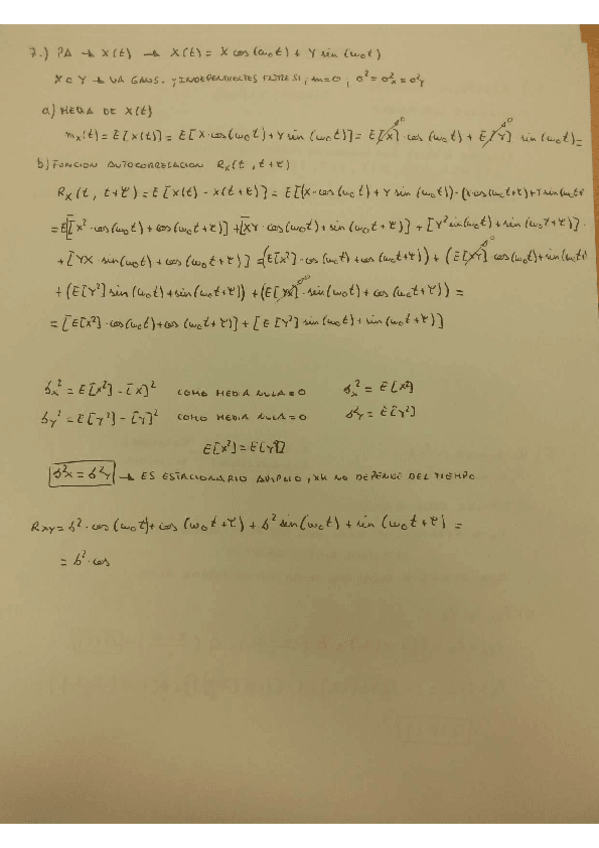 7.) PA → X(t) → X(t) = X cos(ω₀t) + Y sin(ω₀t)
X e Y → VA GAUS. y INDEPENDIENTES ENTRE SI, m=0, σ² = σ²x = σ²y
a) MEDIA DE X(t)
mx(t) = E[X(t)] = E[X·cos(ω₀t) + Y sin(ω₀t)] = E[X]⁰·cos(ω₀t) + E[Y]⁰ sin(ω₀t) =
b) FUNCION AUTOCORRELACION Rx(t, t+τ)
Rx(t, t+τ) = E[X(t) - X(t+τ)] = E[(X·cos(ω₀t) + Y sin(ω₀t))·(X cos(ω₀t+τ) + Y sin(ω₀t
= E[X²·cos(ω₀t) + cos(ω₀t+τ)] + [XY·cos(ω₀t) + sin(ω₀t+τ)] + [Y² sin(ω₀t) + sin(ω₀t+τ)]·
+ [YX·sin(ω₀t) + cos(ω₀t+τ)] = (E[X²]·cos(ω₀t) + cos(ω₀t+τ)) + (E[XY]⁰ cos(ω₀t) + sin(ω₀t
+ (E[Y²] sin(ω₀t) + sin(ω₀t+τ)) + (E[YX]⁰·sin(ω₀t) + cos(ω₀t+τ)) =
= [E[X²]·cos(ω₀t) + cos(ω₀t+τ)] + [E[Y²] sin(ω₀t) + sin(ω₀t+τ)]
σx² = E[X²] - [X]² COMO MEDIA NULA = 0 σx² = E[X²]
σy² = E[Y²] - [Y]² COMO MEDIA NULA = 0 σ²y = E[Y²]
E[X²] = E[Y²]
σ²x = σ²y → ES ESTACIONARIO AMPLIO, YA NO DEPENDE DEL TIEMPO
Rxy = σ²·cos(ω₀t) + cos(ω₀t+τ) + σ² sin(ω₀t) + sin(ω₀t+τ) =
= σ²·cos